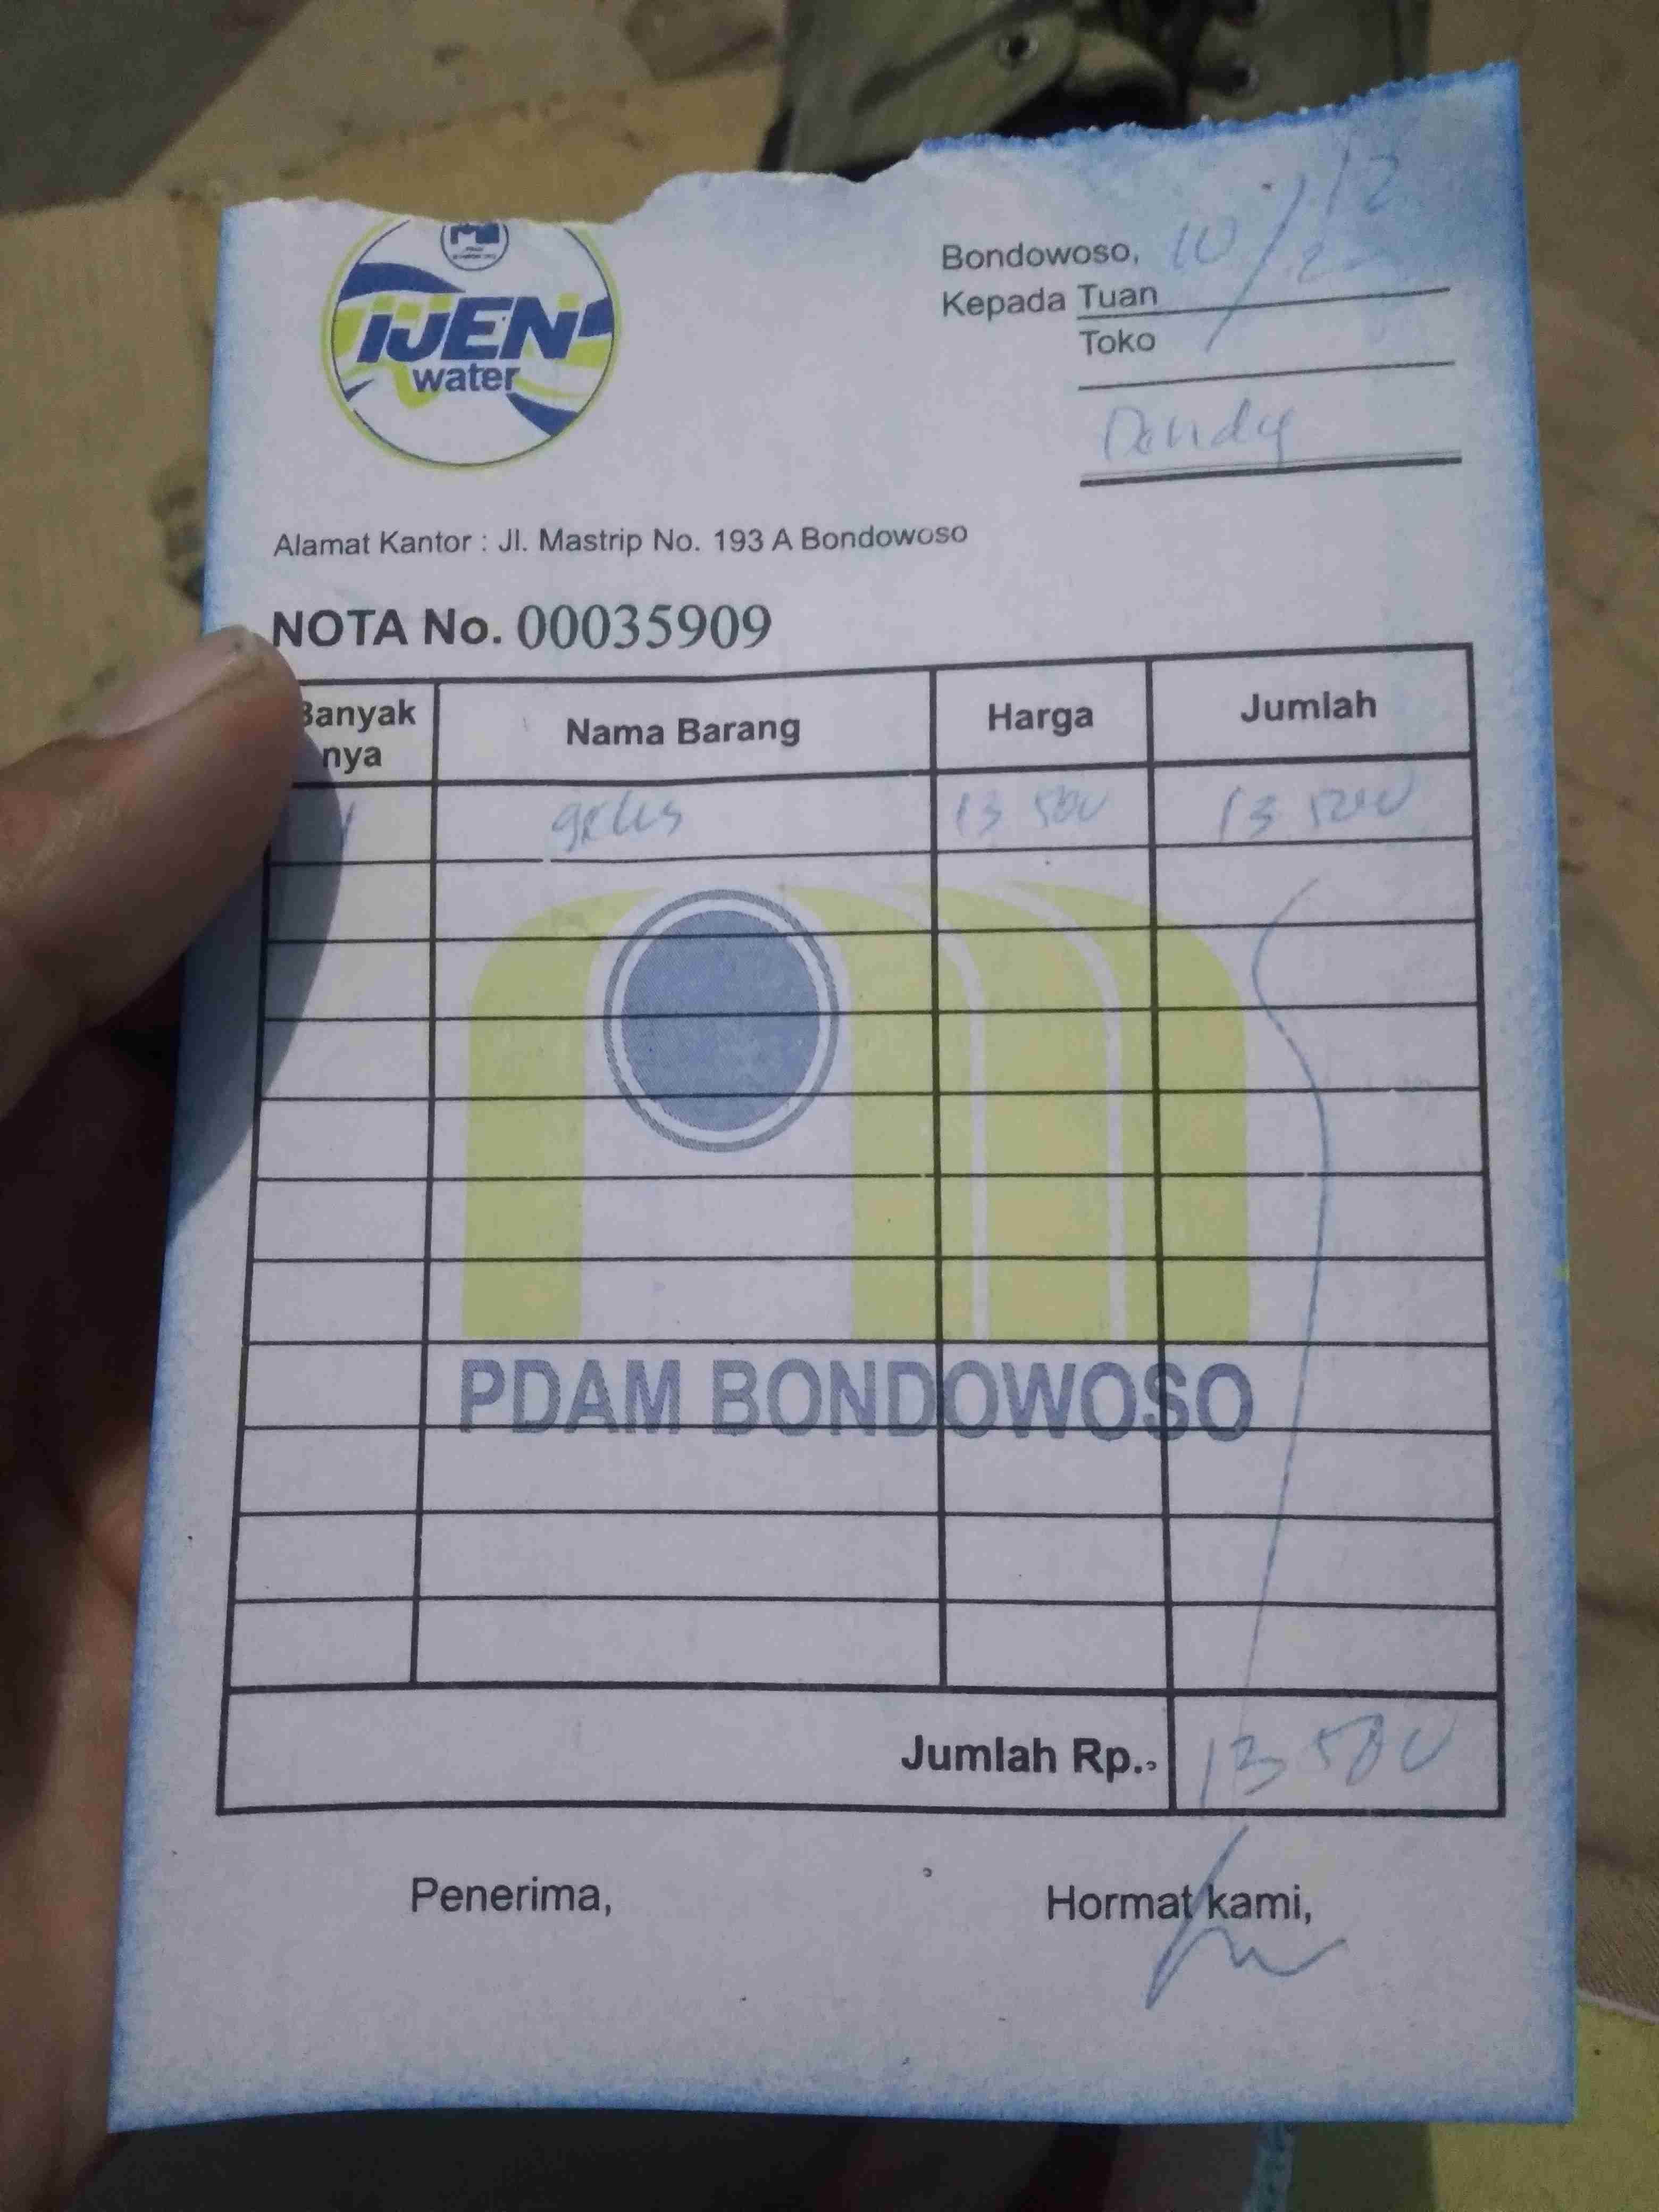 IJEN
water
Bondowoso, 10/12
Kepada Tuan
Toko
Dendy
Alamat Kantor : Jl. Mastrip No. 193 A Bondowoso
NOTA No. 00035909
Banyak nya Nama Barang Harga Jumlah
1 gelas 13 500 13 500
PDAM BONDOWOSO
Jumlah Rp.- 13 500
Penerima, Hormat kami,